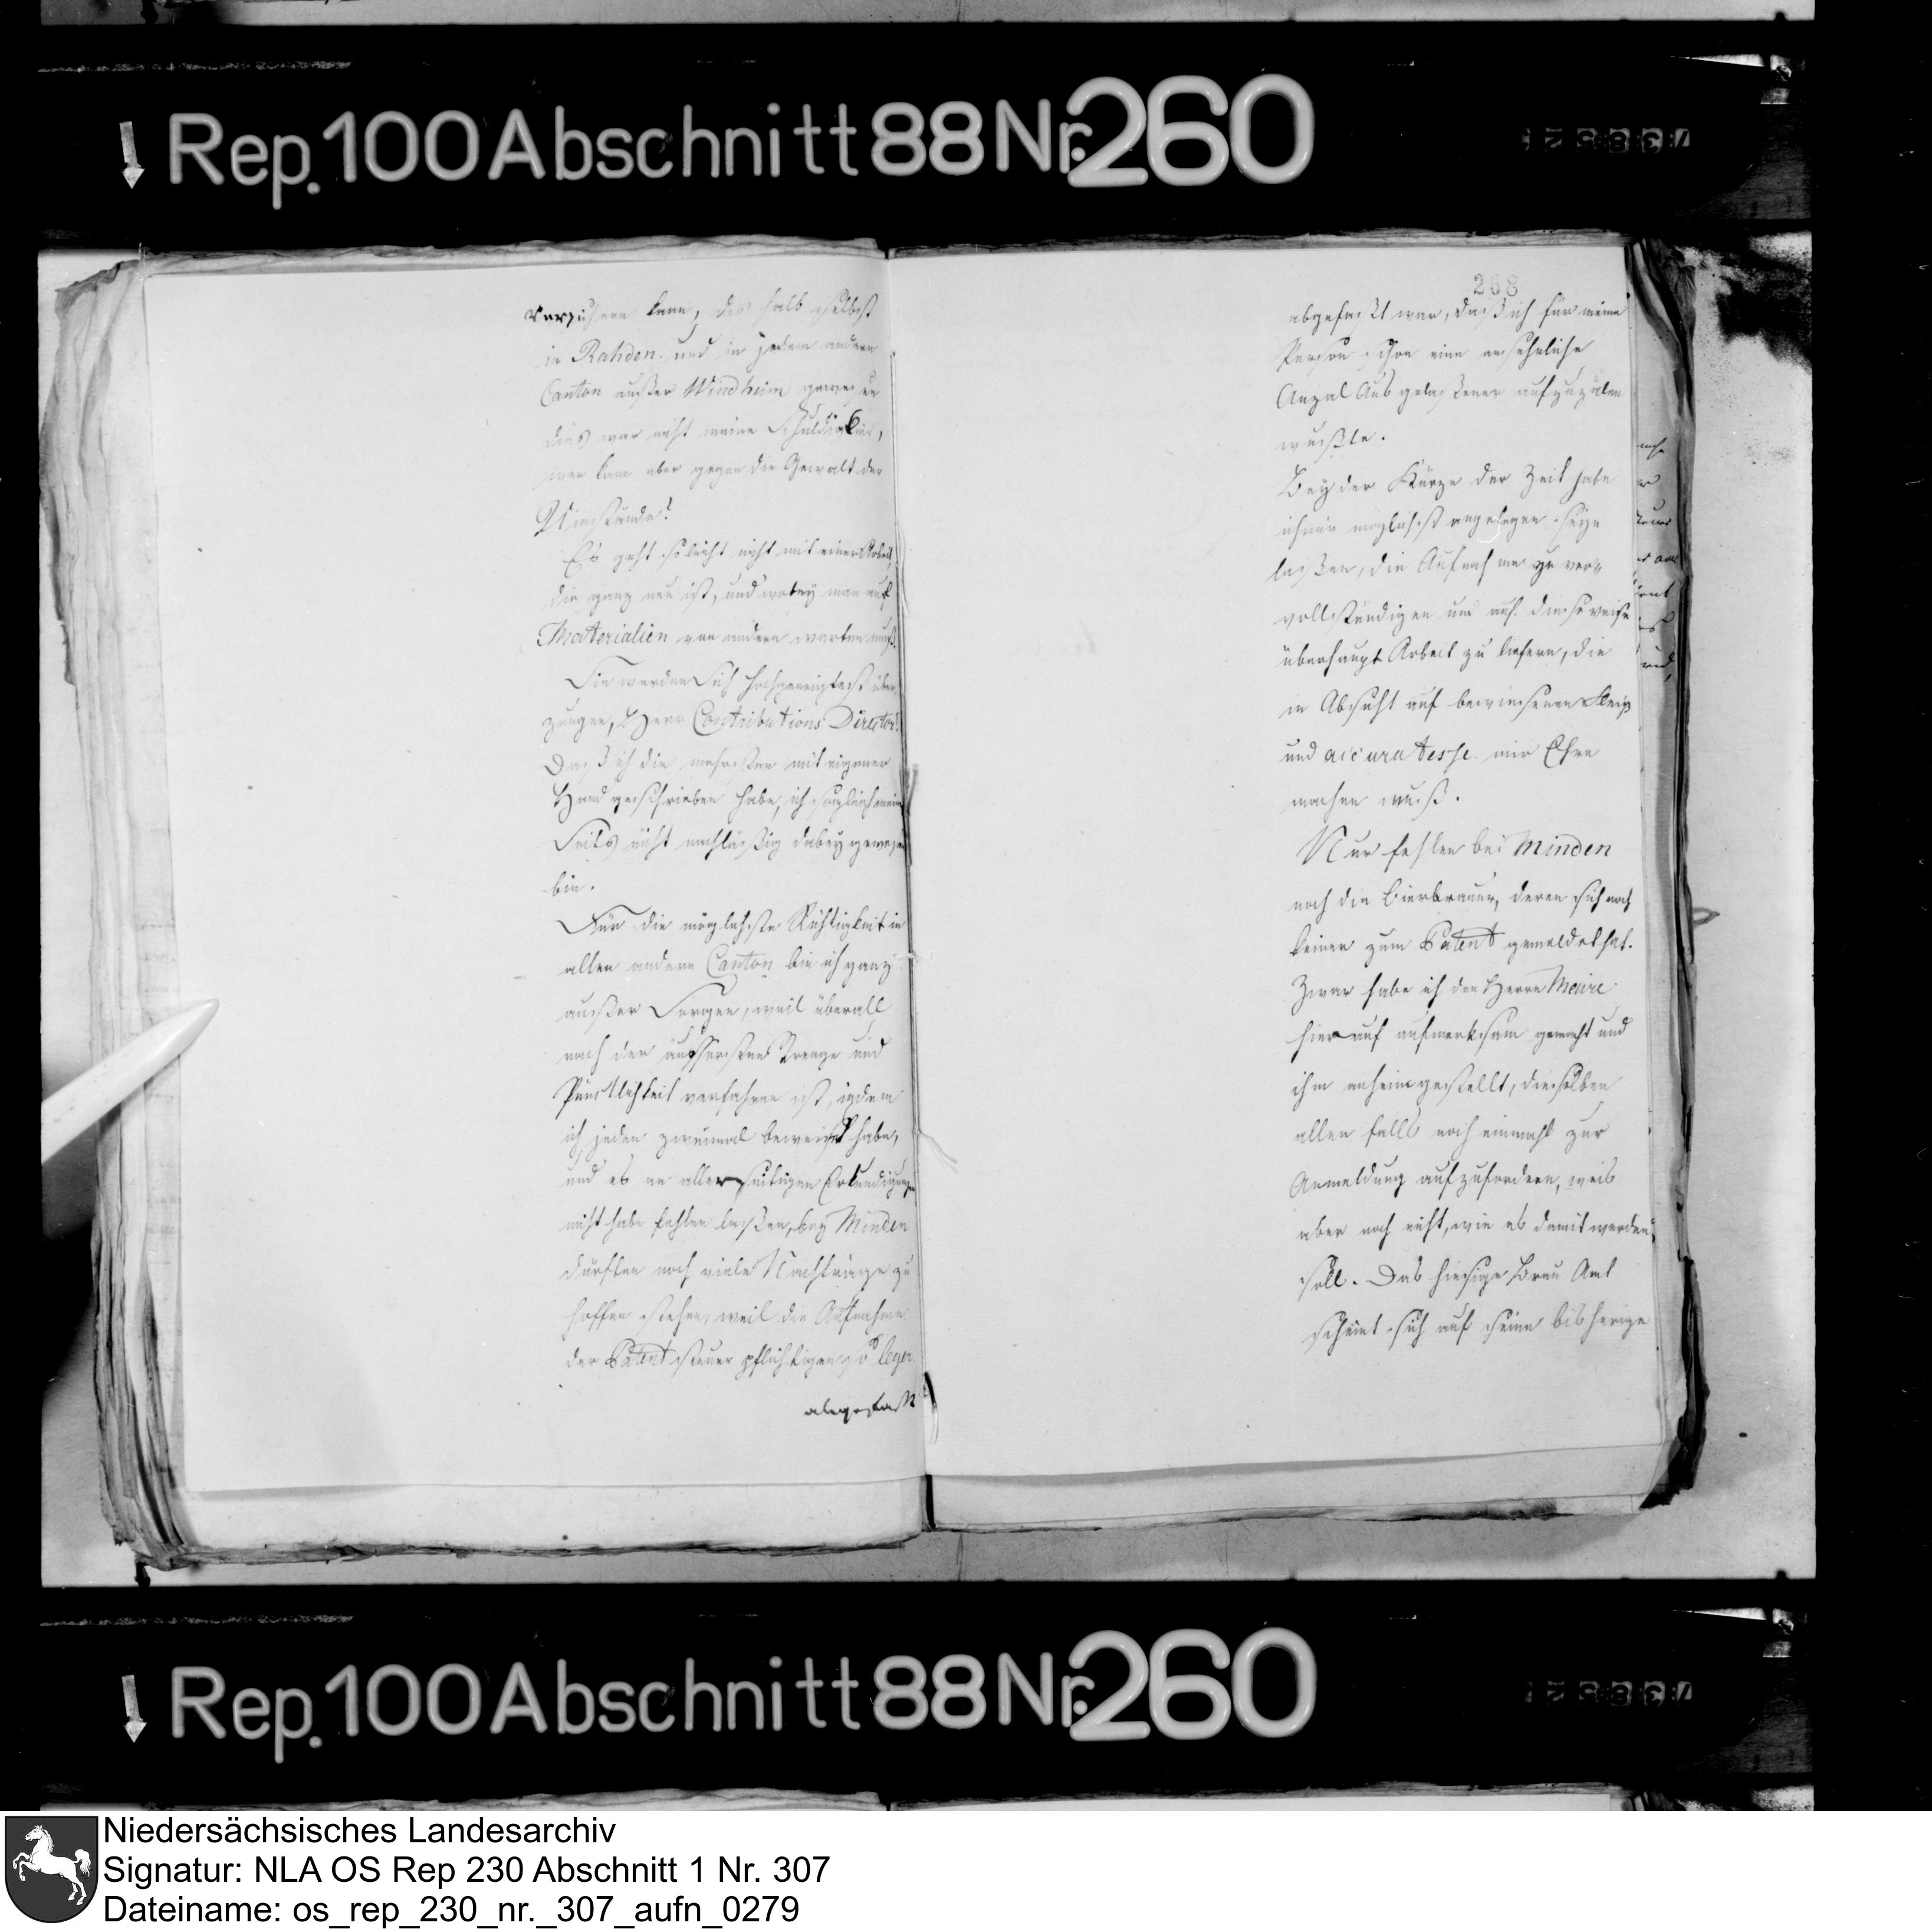 Rep. 100 Abschnitt 88 Nr. 260
kann, des halb selbst
in Rahden und in jedem andern
Canton außer Windheim gewesen
dies war nicht meine Schuldigkeit,
wer kann aber gegen die Gewalt der
Umstände!
Es geht so leicht nicht mit einer Arbeit,
die ganz neu ist, und wobey man auf
Materialien von andern warten muß.
Sie werden Sich hochgeneigtest über
zeugen, Herr Contributions Director!
Daß ich die mehrsten mit eigener
Hand geschrieben habe, ich
Seits nicht nachläßig dabey gewesen
bin.
Für die möglichste Richtigkeit in
allen andern Canton bin ich ganz
außer Sorgen, weil überall
nach der äusserßten Strenge und
Pünctlichkeit verfahren ist, indem
ich jeden zweimal habe,
und es an allerseitigen Erkundigungen
nicht habe fehlen laßen, bey Minden
dürften noch viele Nachträge zu
hoffen stehen, weil die Aufnahme
der Patent steuer pflichtigen so leger
abgefaßt
268
abgefaßt war, daß ich für meine
Person schon eine ansehnliche
Anzal Ausgelaßener aufzuzälen
wußte.
Bey der Kürze der Zeit habe
ich mir möglichst angelegen seyn
laßen, die Aufnahme zu ver„
vollständigen und auf diese weise
überhaupt Arbeit zu liefern, die
in Absicht auf bewiesenen Fleiß
und accuratesse mir Ehre
machen muß.
Nur fehlen bei Minden
noch die Bierbrauer, deren sich noch
keiner zum Patent gemeldet hat.
Zwar habe ich den Herrn Maire
hierauf aufmerksam gemacht und
ihm anheimgestellt, dieselben
allen falls noch einmahl zur
Anmeldung aufzufordern, weis
aber noch nicht, wie es damit werden
soll. Das hiesige Brau Amt
scheint sich auf seine bisherige
Rep. 100 Abschnitt 88 Nr. 260
Niedersächsisches Landesarchiv
Signatur: NLA OS Rep 230 Abschnitt 1 Nr. 307
Dateiname: os_rep_230_nr._307_aufn_0279